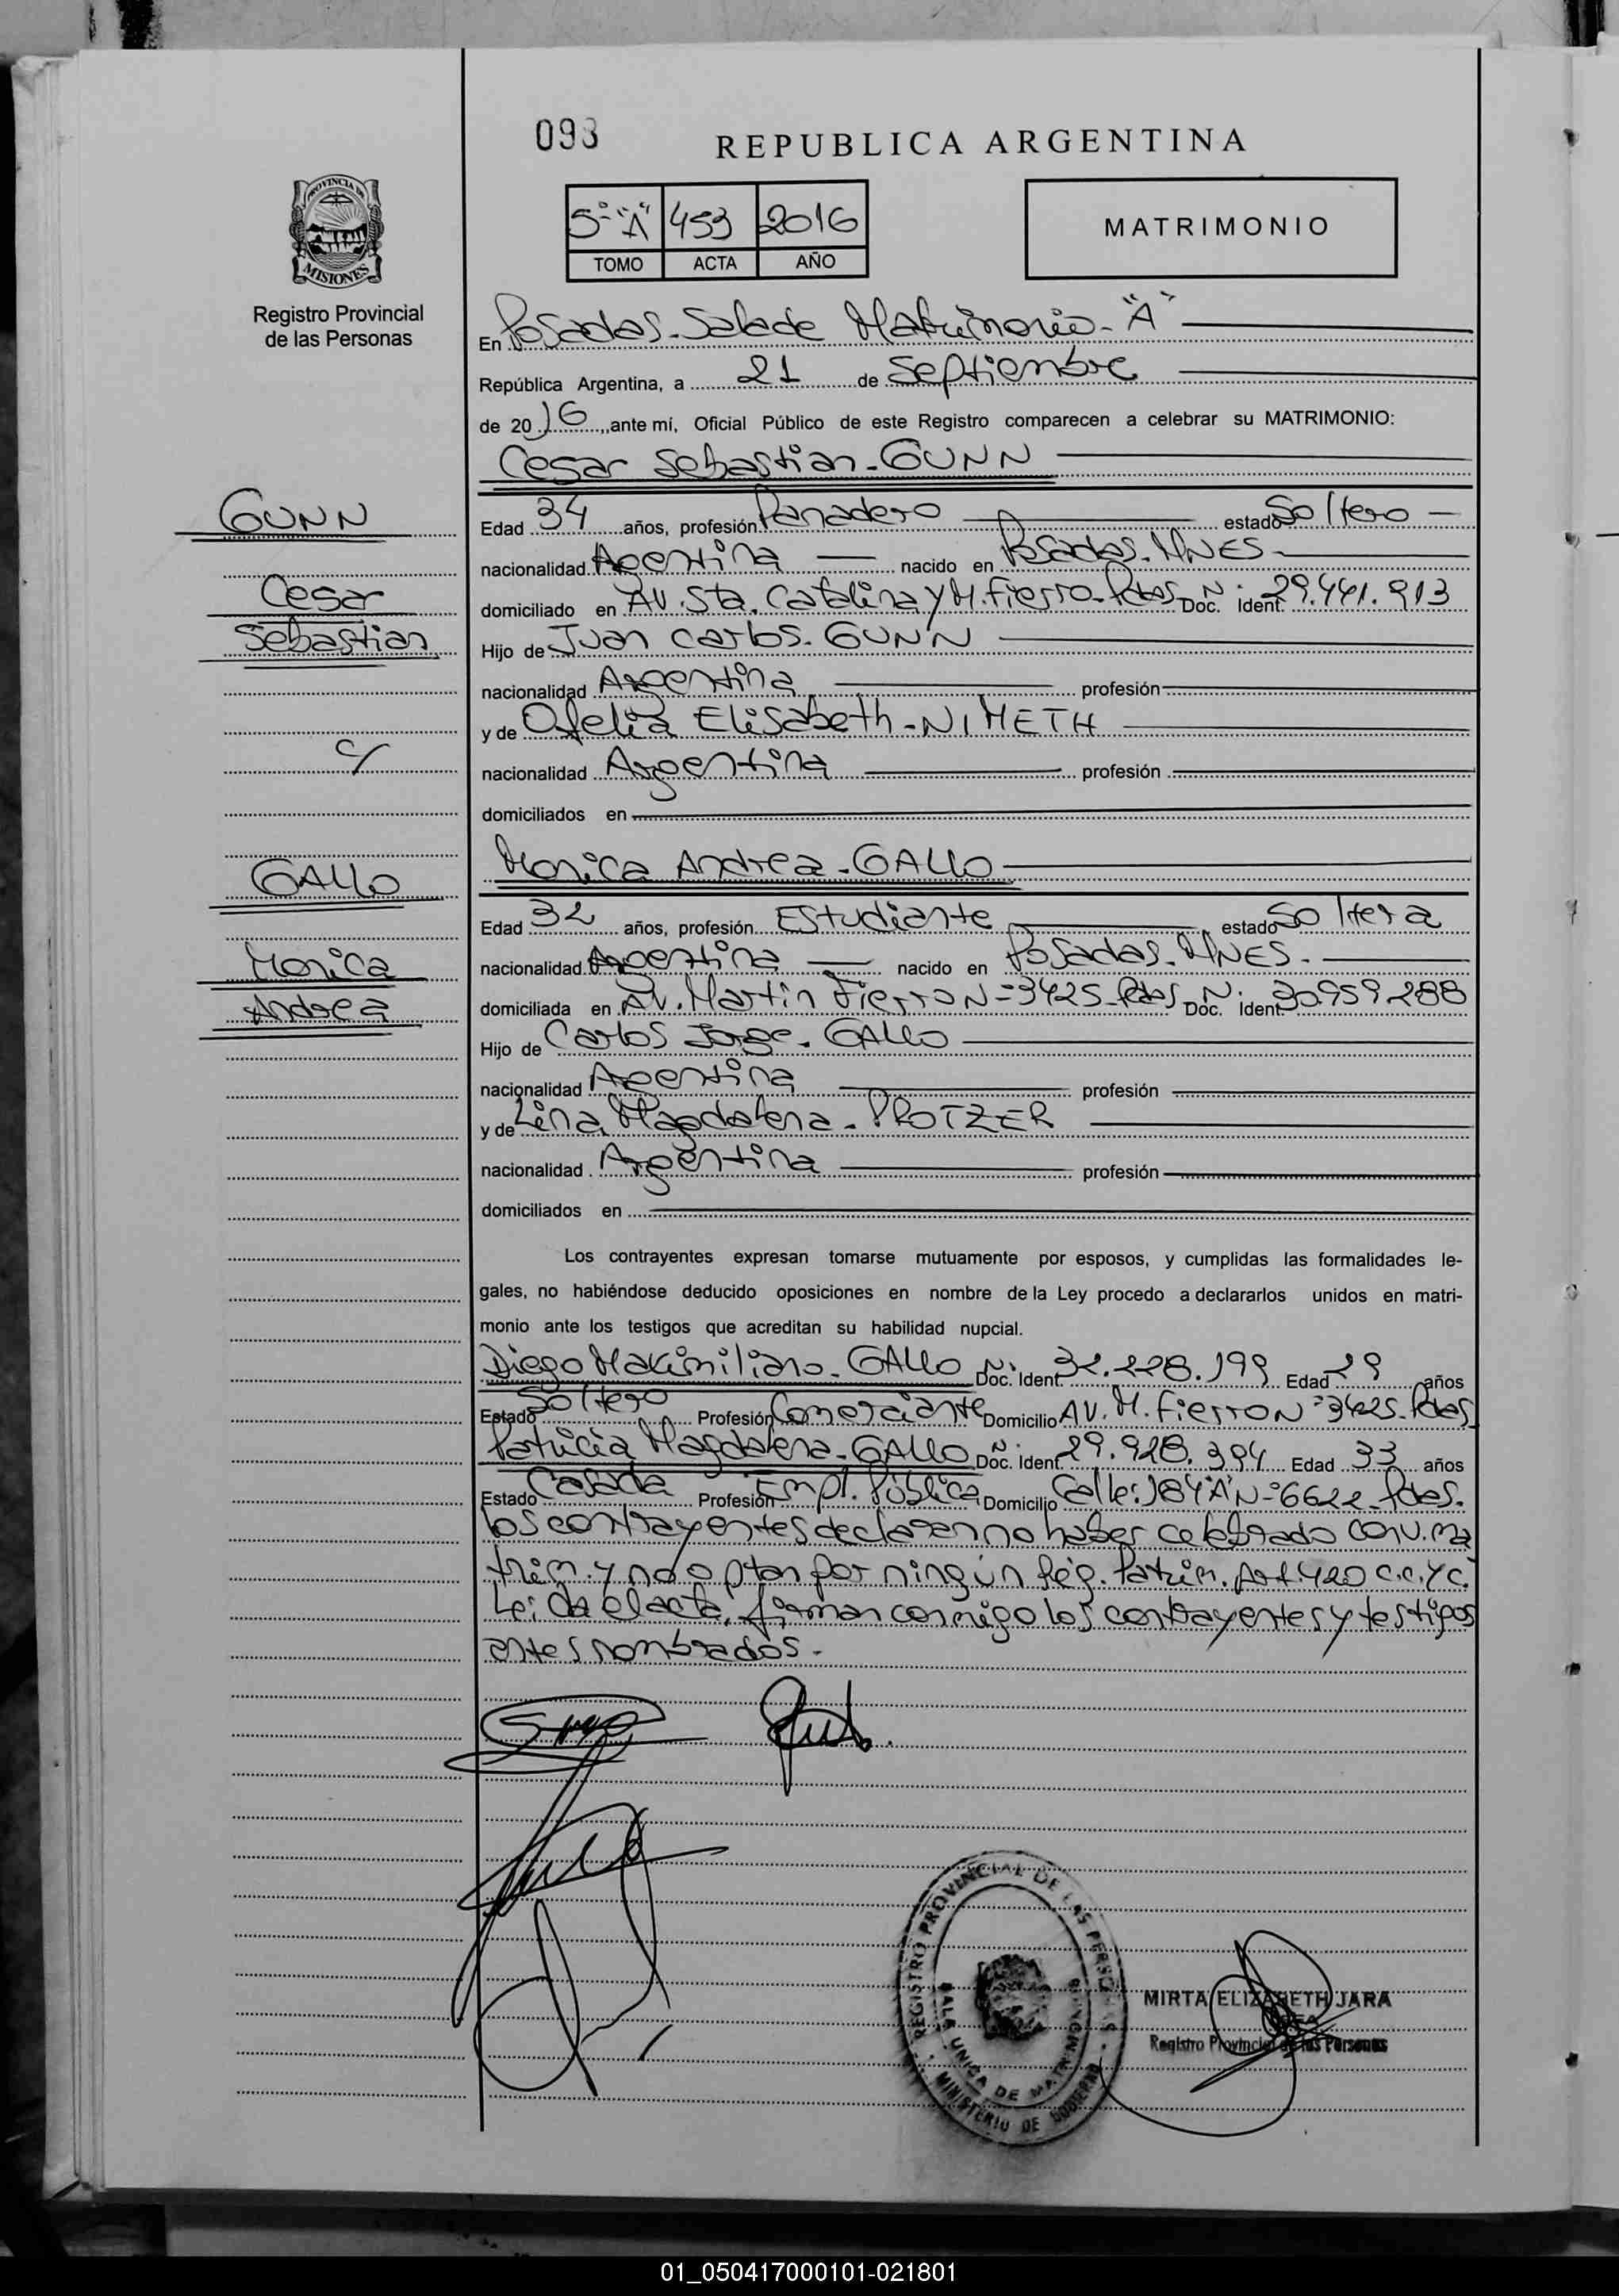 093
REPUBLICA ARGENTINA
5º "A" 453 2016
TOMO ACTA AÑO
MATRIMONIO
PROVINCIA DE
MISIONES
Registro Provincial
de las Personas
En Posadas. Sala de Matrimonio - "A"
República Argentina, a 21 de Septiembre
de 2016, ante mí, Oficial Público de este Registro comparecen a celebrar su MATRIMONIO:
Cesar Sebastian - GUNN
GUNN
Edad 34 años, profesión Panadero estado Soltero -
nacionalidad Argentina nacido en Posadas. MNES -
Cesar
domiciliado en AV. Sta. Catalina y M. Fierro - Pdas Doc. Nº Ident. 29.441.913
Sebastian
Hijo de Juan Carlos. GUNN
nacionalidad Argentina profesión
y de Ofelia Elisabeth - NIMETH
c/
nacionalidad Argentina profesión
domiciliados en
Monica Andrea - GALLO
GALLO
Edad 32 años, profesión Estudiante estado Soltera
Monica
nacionalidad Argentina nacido en Posadas. MNES -
Andrea
domiciliada en AV. Martin Fierro Nº 3425 - Pdas Doc. Nº Ident. 30959288
Hijo de Carlos Jorge - GALLO
nacionalidad Argentina profesión
y de Lina Magdalena - PROTZER
nacionalidad Argentina profesión
domiciliados en
Los contrayentes expresan tomarse mutuamente por esposos, y cumplidas las formalidades le-
gales, no habiéndose deducido oposiciones en nombre de la Ley procedo a declararlos unidos en matri-
monio ante los testigos que acreditan su habilidad nupcial.
Diego Maximiliano - GALLO Nº Doc. Ident. 32.228.199 Edad 29 años
Estado Soltero Profesión Comerciante Domicilio AV. M. Fierro Nº 3425 - Pdas
Patricia Magdalena - GALLO Nº Doc. Ident. 29.928.394 Edad 33 años
Estado Casada Profesión Empl. Pública Domicilio Calle: 184 "A" Nº 6622 - Pdas.
los contrayentes declaran no haber celebrado conv. ma
trim. y no optan por ningún Rég. Patrim. Art. 420 C.C. y C.
Leída el acta, firman conmigo los contrayentes y testigos
antes nombrados -
REGISTRO PROVINCIAL DE LAS PERSONAS
SALA UNICA DE MATRIMONIOS
MINISTERIO DE GOBIERNO
MIRTA ELIZABETH JARA
Registro Provincial de las Personas
01_050417000101-021801